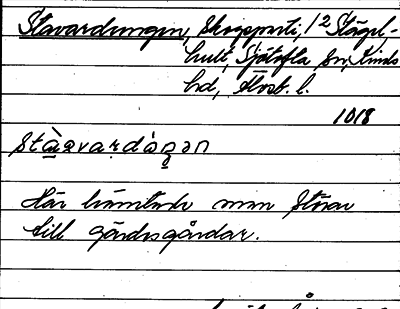 Stavardungen, Skogsparti, 1/2 Stägel-
hult, Sjötofta sn, Kinds
hd, Älvsb. l.
1018
Här hämtade man störar
till gärdesgårdar.